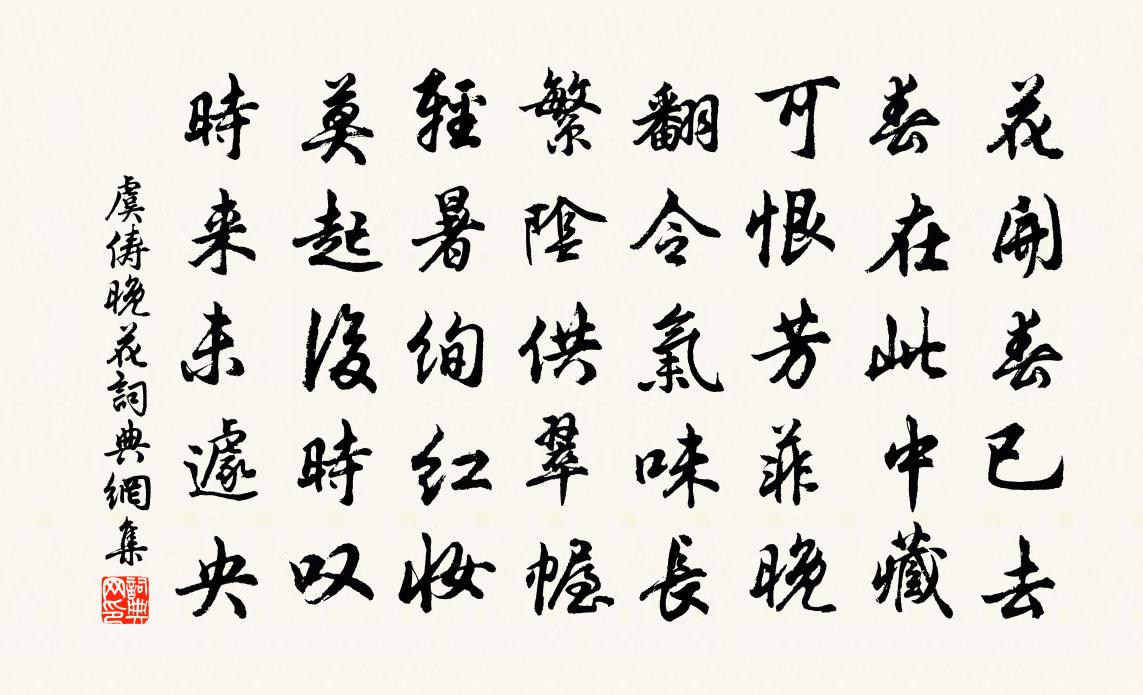 花開春已去
春在此中藏
可恨芳菲晚
翻令氣味長
繁陰供翠幄
輕暑絢紅妝
莫起後時叹
時来未遽央
虞儔晚花詞典網集
詞典網印